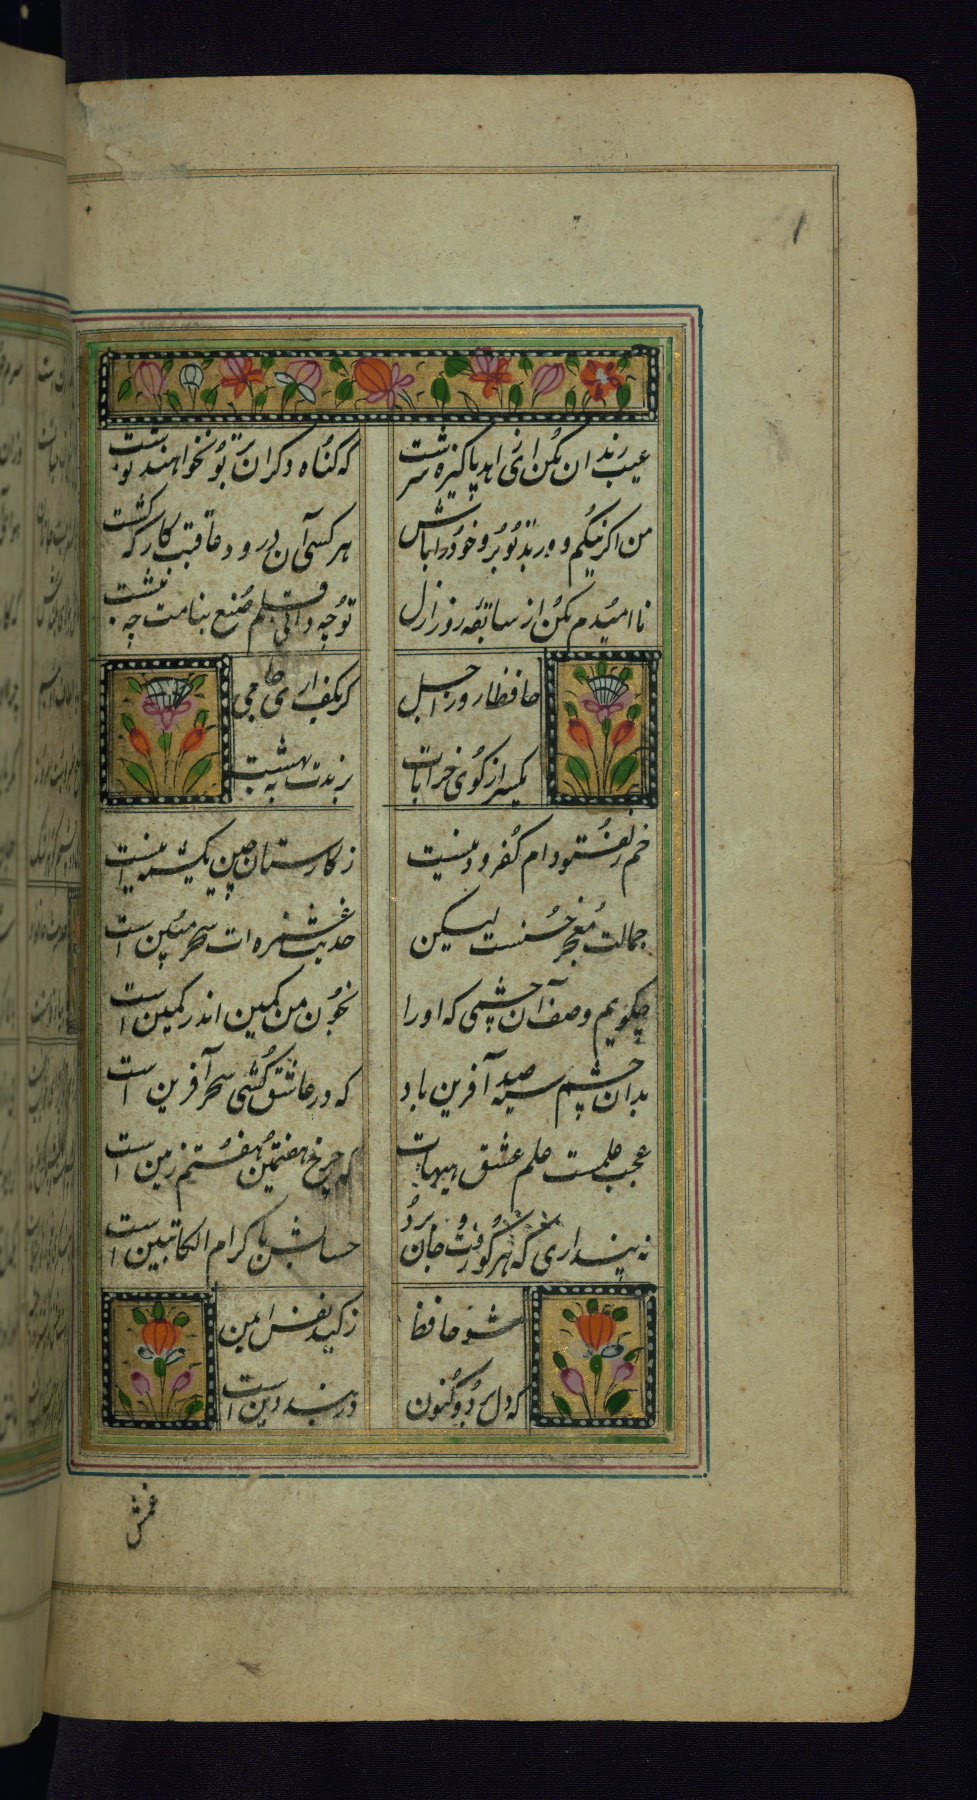 عیب رندان مکن ای زاهد پاکیزه سرشت
که کناه دکران بر تو نخواهند نوشت
من اکر نیکم و ور بد تو برو خود را باش
هر کسی آن درود عاقبت کار که کشت
نا امیدم مکن از سابقه روز ازل
تو چه دانی قلم صنع بنامت چه نبشت
حافظا روز اجل
کر بکف اری جامی
یکسر از کوی خرابات
برندت به بهشت
خم زلفت دام کفر و دینست
ز کارستان چین یک شمه اینست
جمالت معجز حسنست لیکن
حدیث غمزه ات سحر مبین است
چکویم وصف آن چشمی که او را
بخون من کمین اندر کمین است
بدان چشم سیه صد آفرین باد
که در عاشق کشی سحر آفرین است
عجب علمست علم عشق هیهات
که چرخ هفتمین هفتم زمین است
نه پنداری که هر کو رفت و جان برد
حسابش با کرام الکاتبین است
مشو حافظ
ز کید نفس ایمن
که دل برد و کنون
در بند دین است
غمش